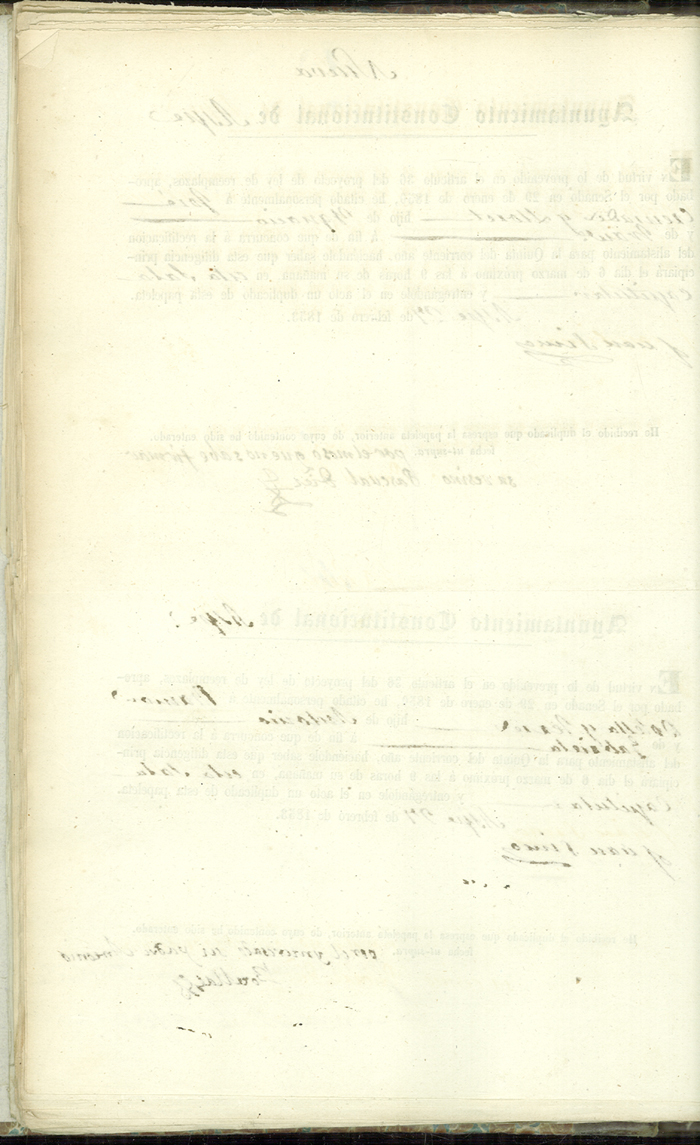 Nueva
Ayuntamiento Constitucional de Aspe
En virtud de lo prevenido en el artículo 26 del proyecto de ley de reemplazos, apro-
bado por el Senado en 29 de enero de 185 , he citado personalmente á José
y hijo de Ygnacio
y de á fin de que concurra á la rectificacion
del alistamiento para la Quinta del corriente año, haciéndole saber que esta diligencia prin-
cipiará el dia 6 de marzo próximo á las 9 horas de su mañana, en esta Sala
Capitular y entregándole en el acto un duplicado de esta papeleta.
Aspe 27 de febrero de 1863.
Juan
He recibido el duplicado que espresa la papeleta anterior, de cuyo contenido he sido enterado.
fecha ut-supra. por el moso que no sabe firmar
su vesino Pascual
Ayuntamiento Constitucional de Aspe
En virtud de lo prevenido en el artículo 26 del proyecto de ley de reemplazos, apro-
bado por el Senado en 29 de enero de 185 , he citado personalmente á Ramon
y hijo de Antonio
y de Gabriela á fin de que concurra á la rectificacion
del alistamiento para la Quinta del corriente año, haciéndole saber que esta diligencia prin-
cipiará el dia 6 de marzo próximo á las 9 horas de su mañana, en esta Sala
Capitular y entregándole en el acto un duplicado de esta papeleta.
Aspe 27 de febrero de 1863.
Juan
He recibido el duplicado que espresa la papeleta anterior, de cuyo contenido he sido enterado.
fecha ut-supra. por el su padre Antonio